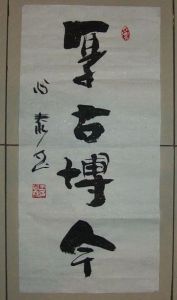 厚古博今
心泰书